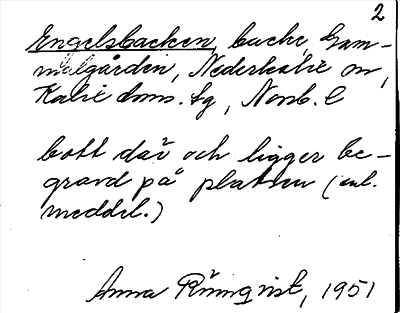 2
Engelsbacken, backe, Gam-
malgården, Nederkalix sn,
Kalix doms. tg, Norrb. l
bott där och ligger be-
gravd på platsen (enl.
meddel.)
Anna Rönnqvist, 1951